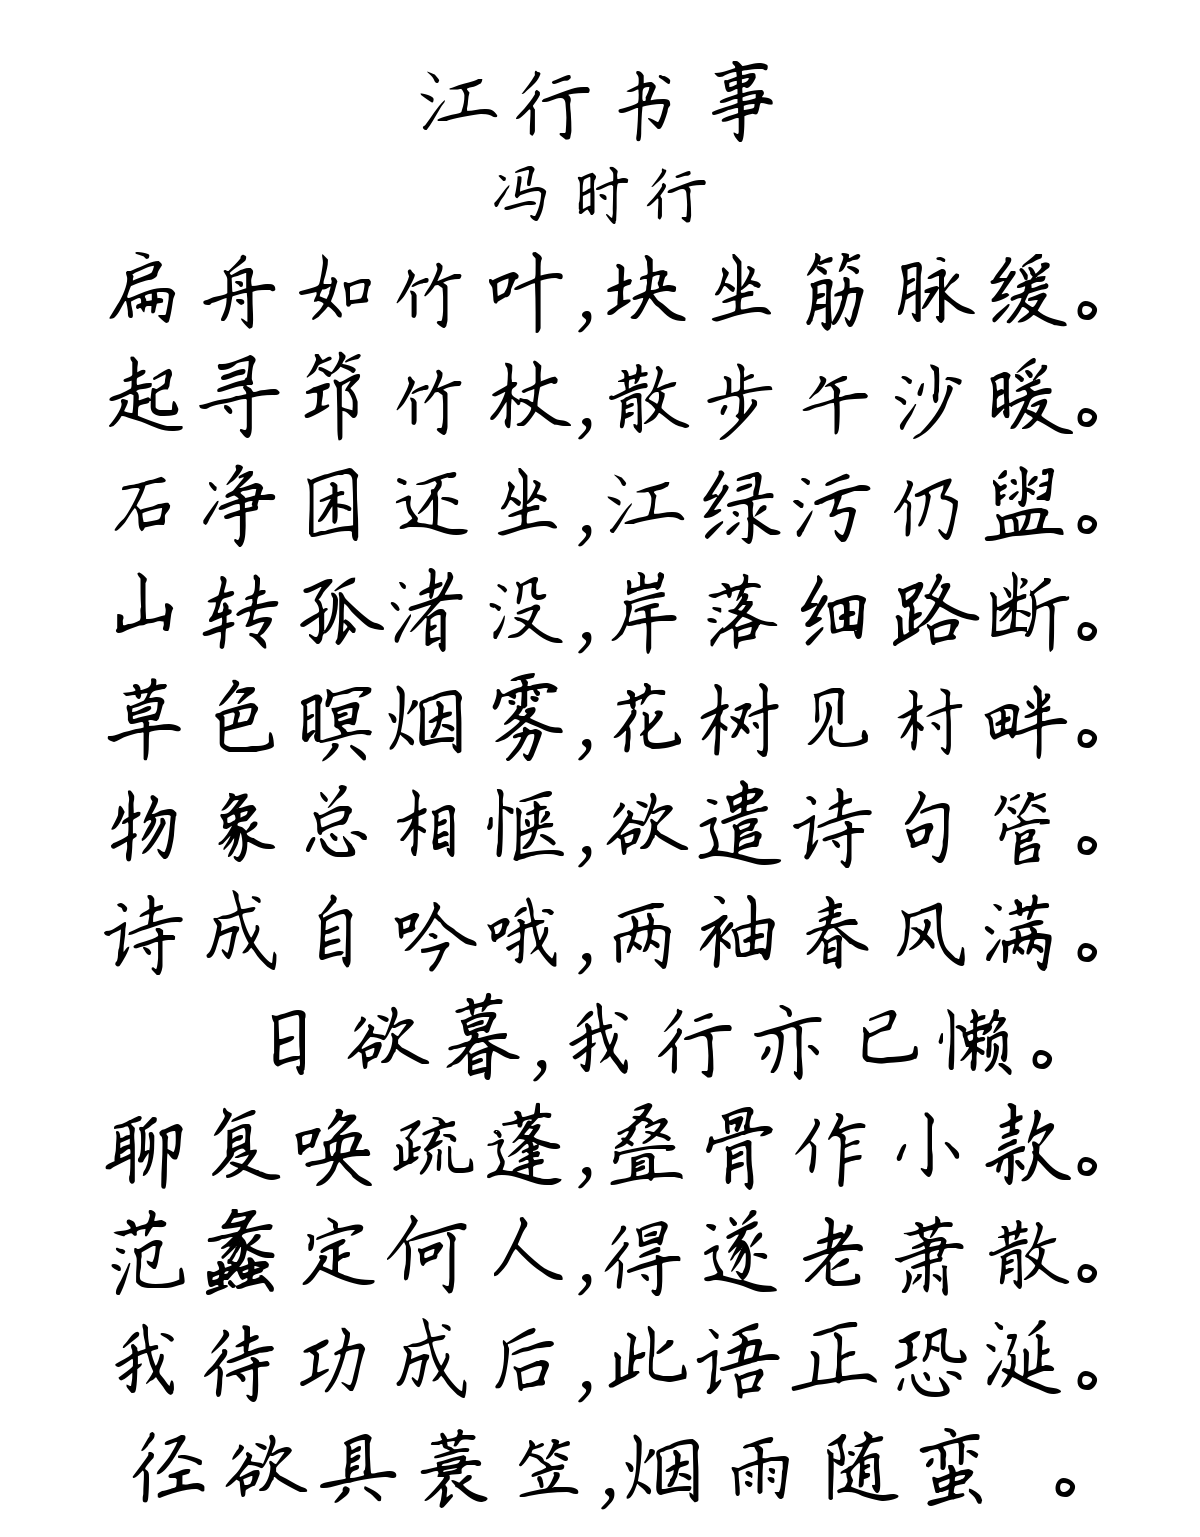 江行书事
冯时行
扁舟如竹叶,块坐筋脉缓。
起寻筇竹杖,散步午沙暖。
石净困还坐,江绿污仍盥。
山转孤渚没,岸落细路断。
草色暝烟雾,花树见村畔。
物象总相惬,欲遣诗句管。
诗成自吟哦,两袖春风满。
日欲暮,我行亦已懒。
聊复唤疏蓬,叠骨作小款。
范蠡定何人,得遂老萧散。
我待功成后,此语正恐涎。
径欲具蓑笠,烟雨随蛮 。